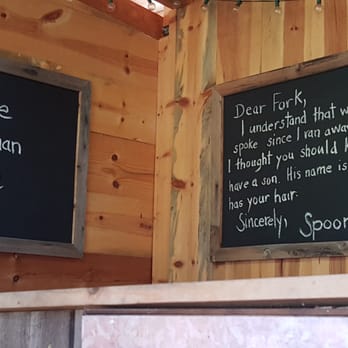 Dear Fork,
I understand that
spoke since I ran away
I thought you should
have a son. His name is
has your hair.
Sincerely, Spoon